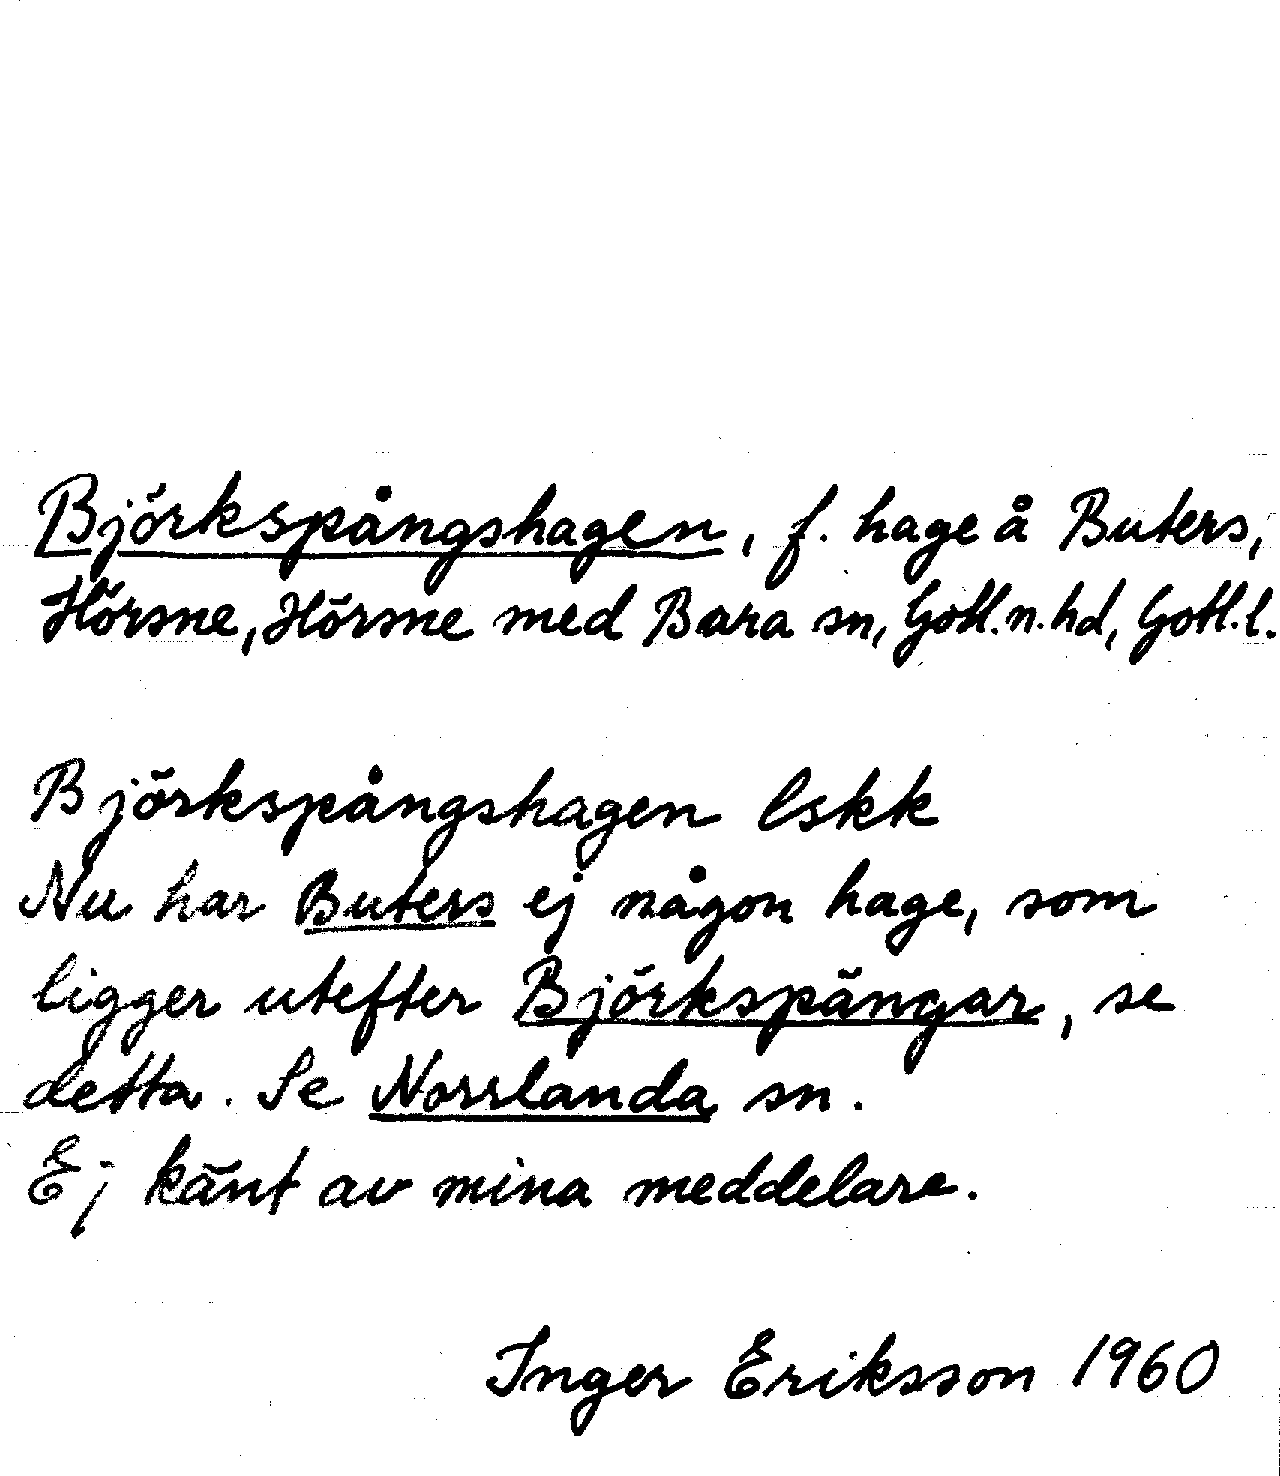 Björkspångshagen, f. hage å Buters,
Hörsne, Hörsne med Bara sn, Gotl. n. hd, Gotl. l.
Björkspångshagen lskk
Nu har Buters ej någon hage, som
ligger utefter Björkspängar, se
detta. Se Norrlanda sn.
Ej känt av mina meddelare.
Inger Eriksson 1960